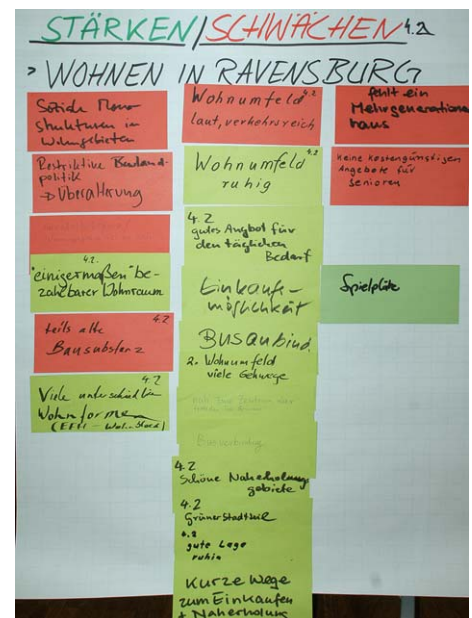 STÄRKEN/SCHWÄCHEN 4.2
> WOHNEN IN RAVENSBURG
Soziale Mono-
strukturen in
Wohngebieten
Restriktive Bauland-
politik
→ Überalterung
4.2.
"einigermaßen" be-
zahlbarer Wohnraum
4.2
teils alte
Bausubstanz
4.2
Viele unterschiedliche
Wohnformen
(EFH - Wohnblock)
Wohnumfeld 4.2
laut, verkehrsreich
4.2
Wohnumfeld
ruhig
4.2
gutes Angbot für
den täglichen
Bedarf
Einkaufs-
möglichkeit
BUSanbind.
2. Wohnumfeld
viele Gehwege
4.2
Schöne Naherholungs
gebiete
4.2
Grüner Stadtteil
4.2
gute Lage
ruhig
Kurze Wege
zum Einkaufen
+ Naherholung
fehlt ein
Mehrgenerationen
haus
Keine kostengünstigen
Angebote für
Senioren
Spielplätze